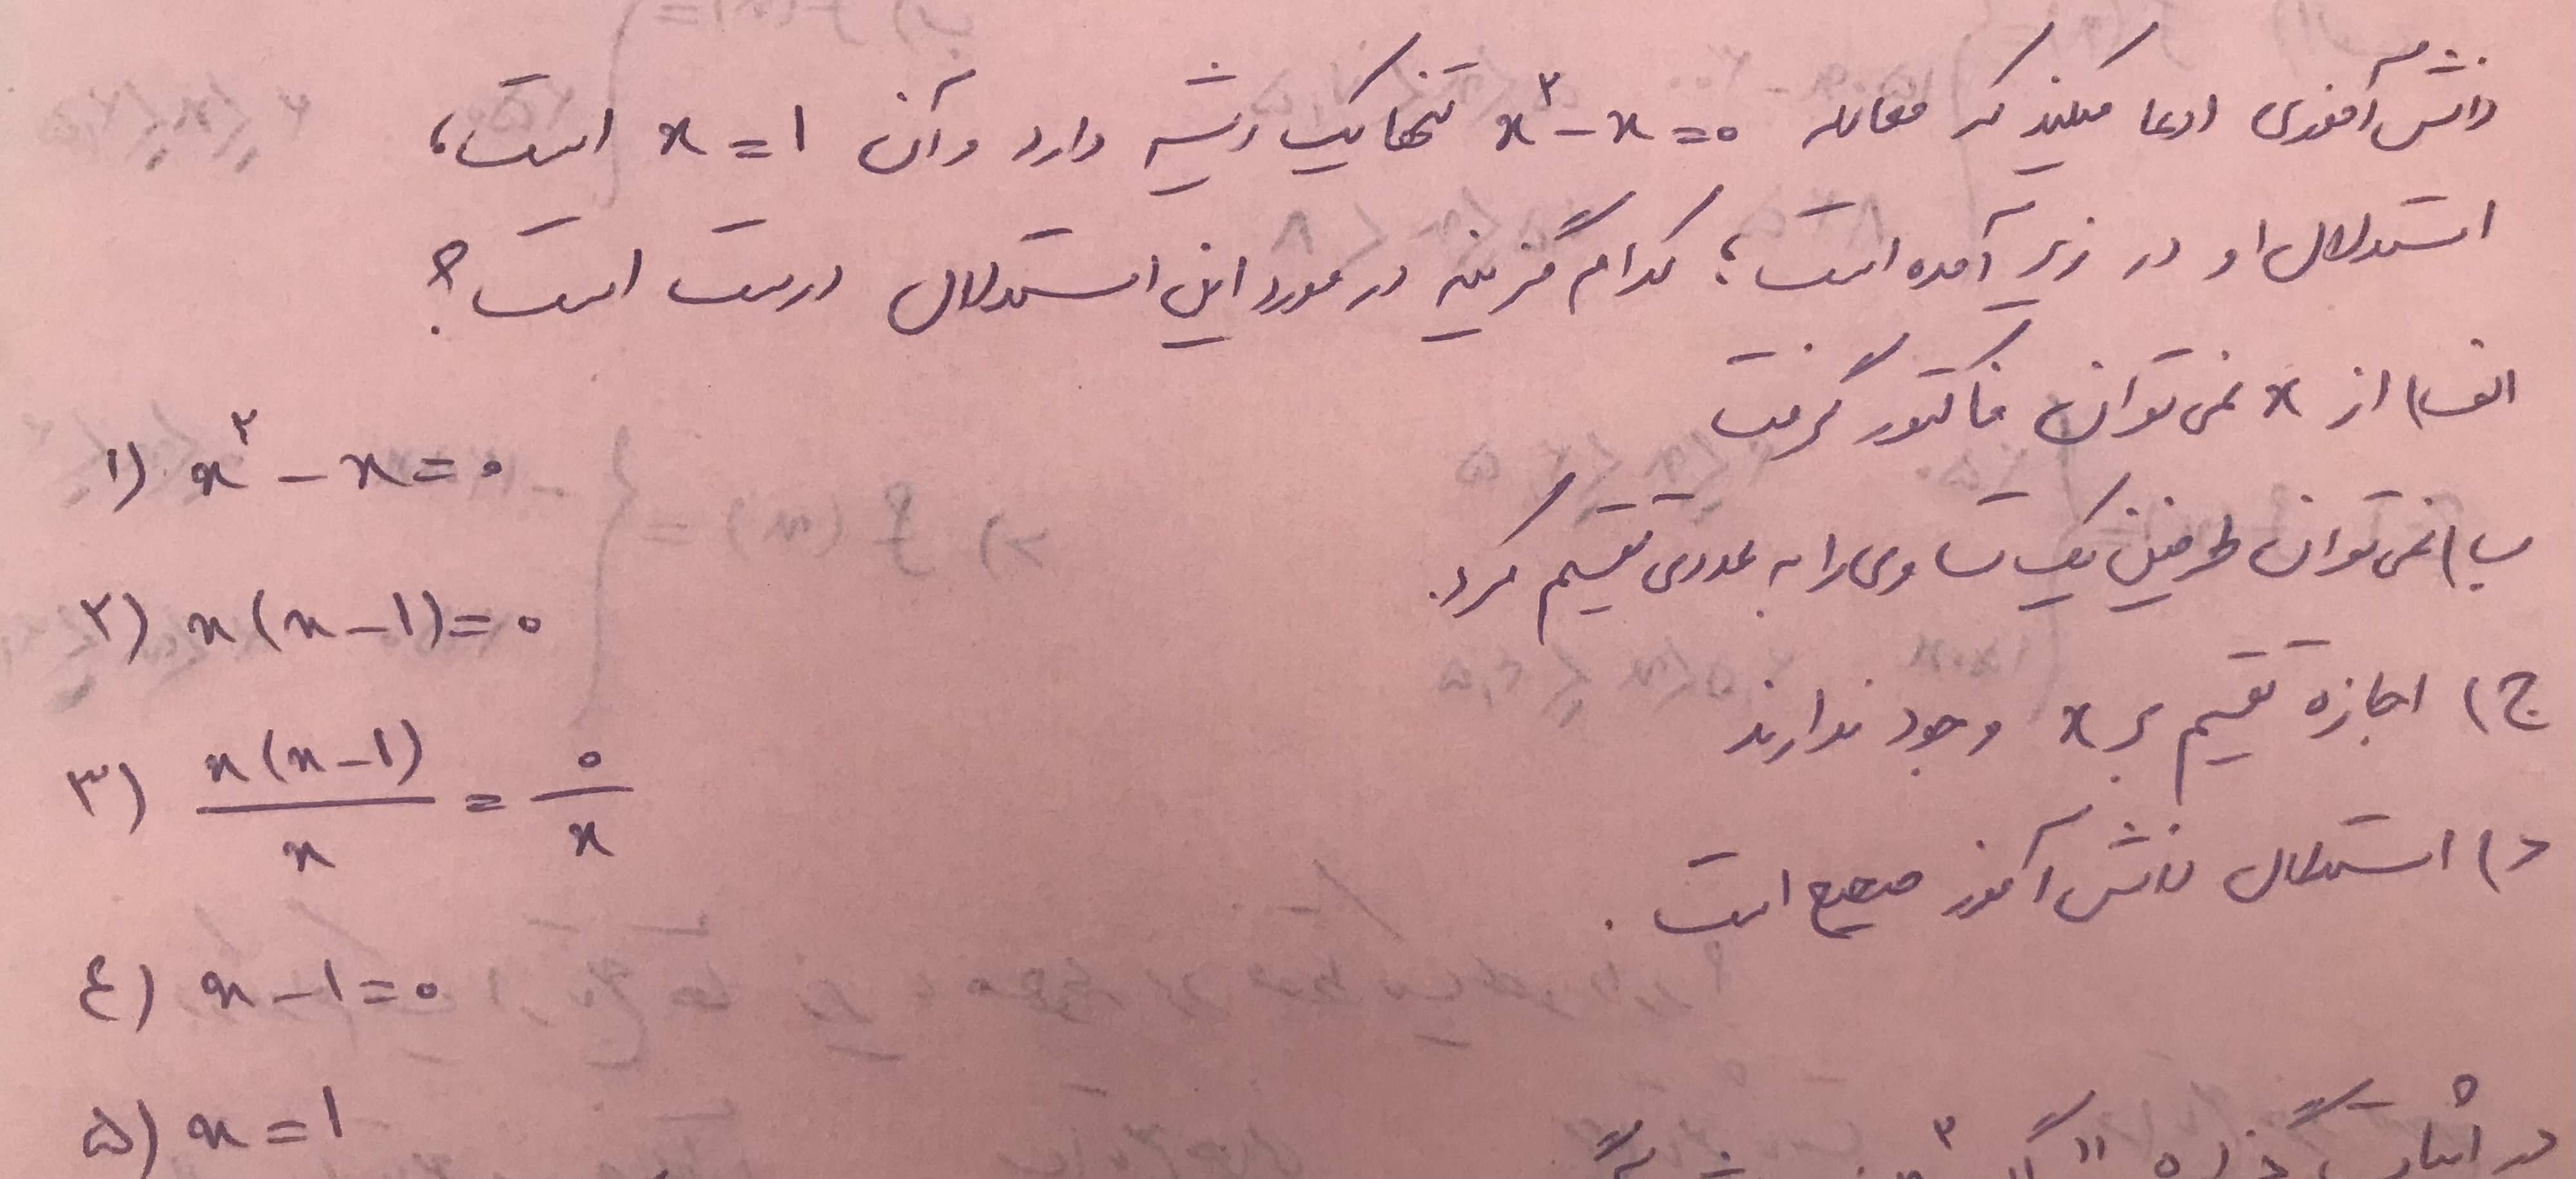 دانش آموزی ادعا میکند که معادله x²-x=0 تنها یک ریشه دارد و آن x=1 است،
استدلال او در زیر آمده است؛ کدام گزینه در مورد این استدلال درست است؟
الف) از x نمی توان فاکتور گرفت
ب) نمی توان طرفین یک تساوی را به عددی تقسیم کرد.
ج) اجازه تقسیم بر x وجود ندارند
د) استدلال دانش آموز صحیح است.
۱) x²-x=0
۲) x(x-1)=0
۳) x(x-1)/x = 0/x
۴) x-1=0
۵) x=1